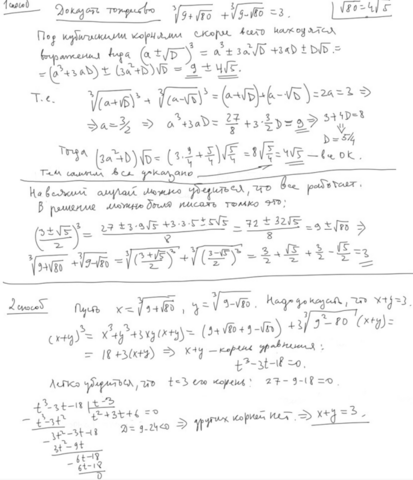 1 способ Доказать тождество ∛(9+√80) + ∛(9-√80) = 3. | √80 = 4√5
Под кубическими корнями скорее всего находятся
выражения вида (a ± √D)³ = a³ ± 3a²√D + 3aD ± D√D =
= (a³+3aD) ± (3a²+D)√D = 9 ± 4√5.
Т.е. ∛(a+√D)³ + ∛(a-√D)³ = (a+√D)+(a-√D) = 2a = 3 ⇒
⇒ a = 3/2 ⇒ a³+3aD = 27/8 + 3·3/2 D = 9 ⇒ 3+4D=8
⇓
D = 5/4
Тогда (3a²+D)√D = (3·9/4 + 5/4)√(5/4) = 8√(5/4) = 4√5 – все ОК.
Тем самым все доказано
На всякий случай можно убедиться, что все работает.
В решение можно было писать только это:
((3±√5)/2)³ = (27 ± 3·9√5 + 3·3·5 ± 5√5)/8 = (72 ± 32√5)/8 = 9 ± √80 ⇒
∛(9+√80) + ∛(9-√80) = ∛((3+√5)/2)³ + ∛((3-√5)/2)³ = 3/2 + √5/2 + 3/2 - √5/2 = 3
2 способ Пусть x = ∛(9+√80), y = ∛(9-√80). Надо доказать, что x+y=3.
(x+y)³ = x³+y³+3xy(x+y) = (9+√80+9-√80) + 3∛(9²-80) (x+y) =
= 18+3(x+y) ⇒ x+y – корень уравнения:
t³-3t-18=0.
Легко убедиться, что t=3 его корень: 27-9-18=0.
t³-3t-18 | t-3
- t³-3t² | t²+3t+6 = 0
3t²-3t-18 D = 9-24<0 ⇒ других корней нет. ⇒ x+y=3.
- 3t²-9t
6t-18
- 6t-18
0